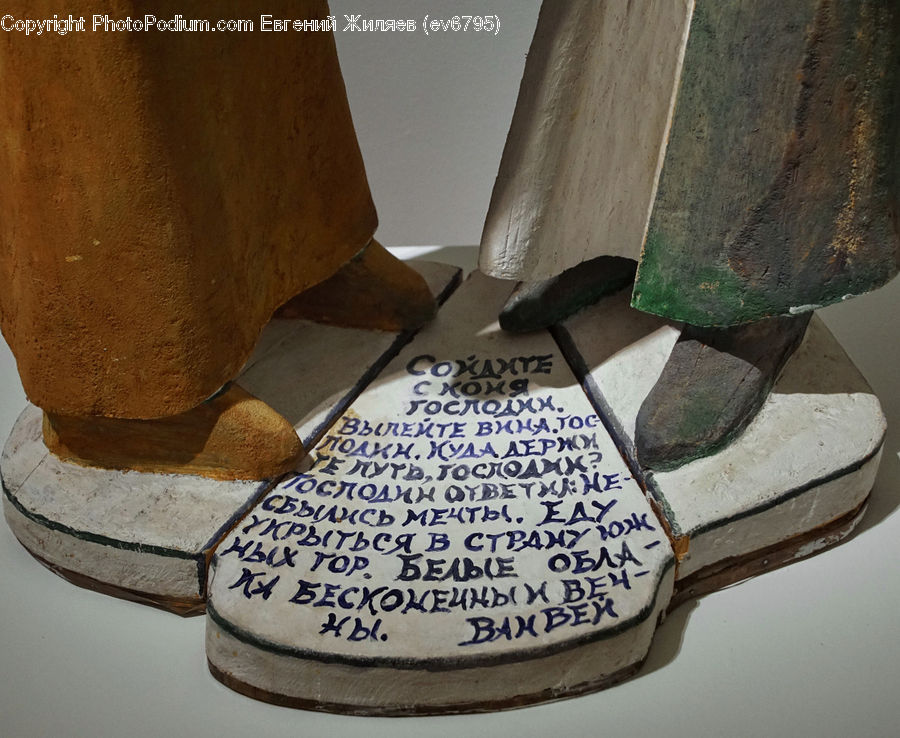 Copyright PhotoPodium.com Евгений Жиляев (ev6795)
СОЙДИТЕ
С КОНЯ
ГОСПОДИН.
ВЫПЕЙТЕ ВИНА, ГОС-
ПОДИН. КУДА ДЕРЖИ
ТЕ ПУТЬ, ГОСПОДИН?
ГОСПОДИН ОТВЕТИЛ: НЕ-
СБЫЛИСЬ МЕЧТЫ. ЕДУ
УКРЫТЬСЯ В СТРАНУ ЮЖ
НЫХ ГОР. БЕЛЫЕ ОБЛА-
КА БЕСКОНЕЧНЫ И ВЕЧ-
НЫ. ВАН ВЕЙ